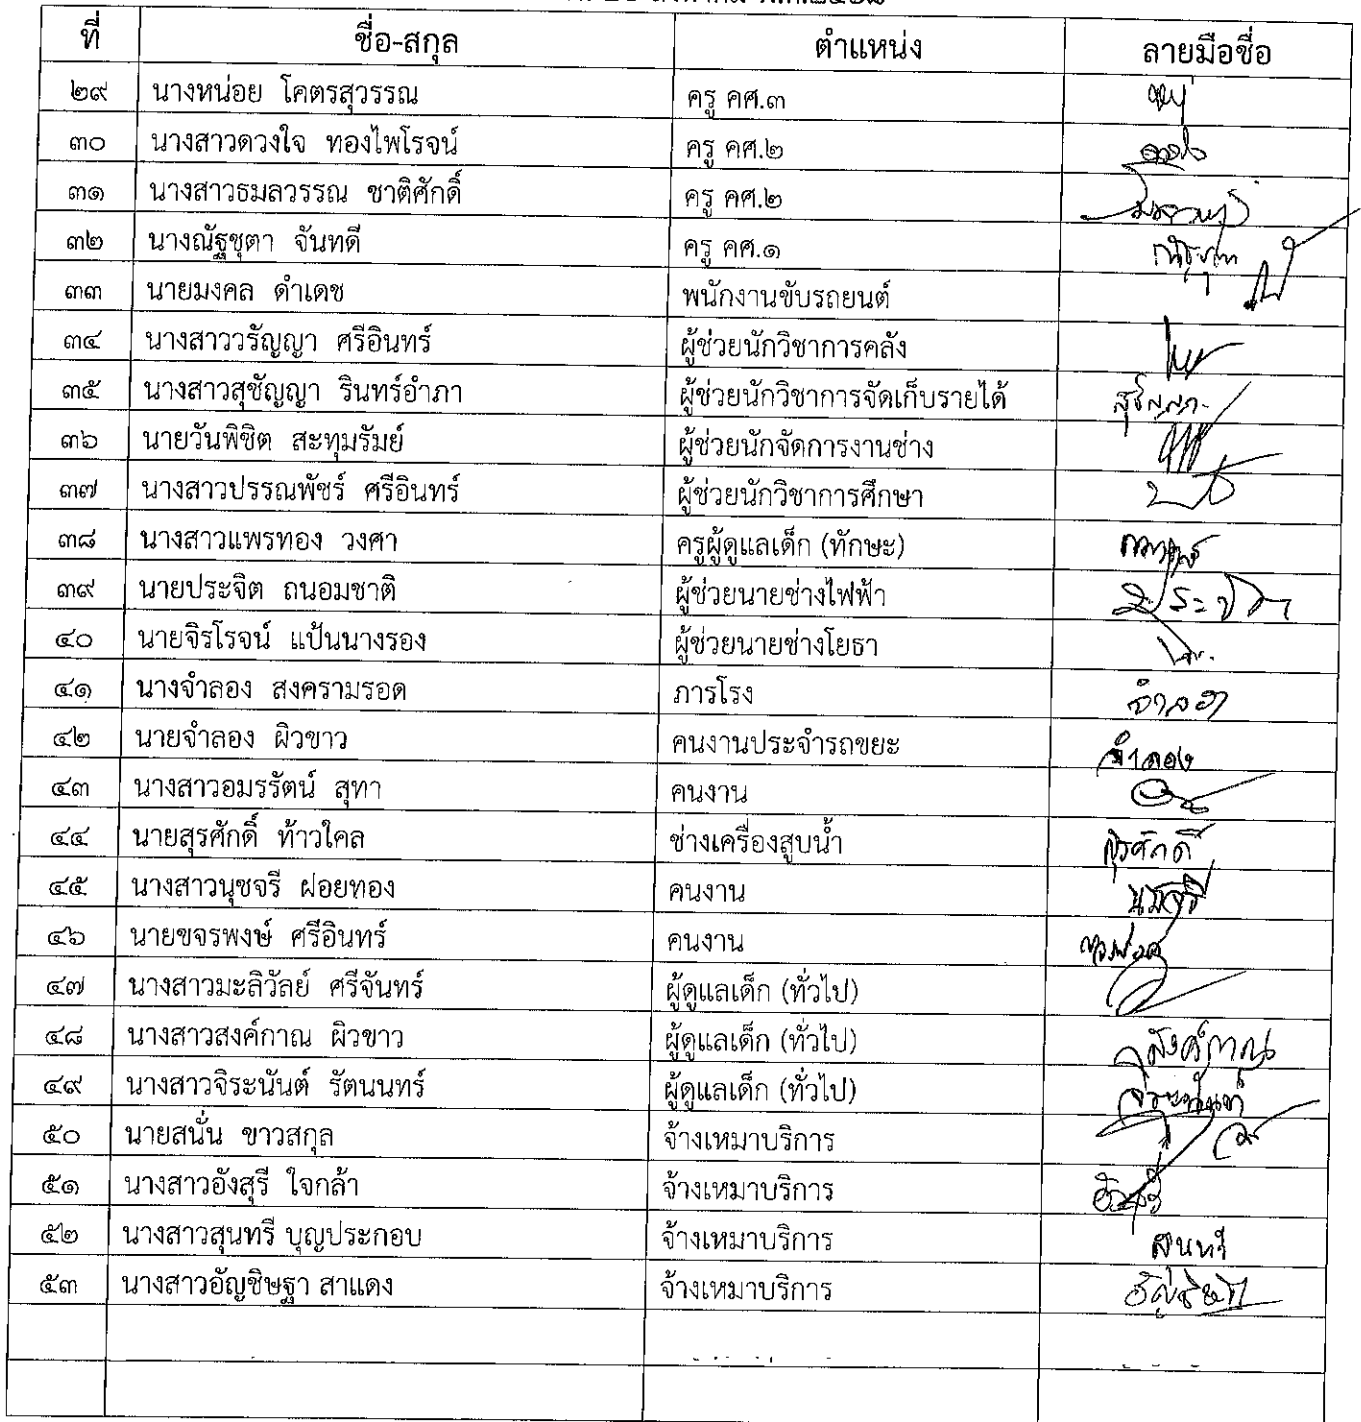 ที่ ชื่อ-สกุล ตำแหน่ง ลายมือชื่อ
๒๙ นางหน่อย โคตรสุวรรณ ครู คศ.๓
๓๐ นางสาวดวงใจ ทองไพโรจน์ ครู คศ.๒
๓๑ นางสาวธมลวรรณ ชาติศักดิ์ ครู คศ.๒
๓๒ นางณัฐชุตา จันทดี ครู คศ.๑
๓๓ นายมงคล ดำเดช พนักงานขับรถยนต์
๓๔ นางสาววรัญญา ศรีอินทร์ ผู้ช่วยนักวิชาการคลัง
๓๕ นางสาวสุชัญญา รินทร์อำภา ผู้ช่วยนักวิชาการจัดเก็บรายได้
๓๖ นายวันพิชิต สะทุมรัมย์ ผู้ช่วยนักจัดการงานช่าง
๓๗ นางสาวปรรณพัชร์ ศรีอินทร์ ผู้ช่วยนักวิชาการศึกษา
๓๘ นางสาวแพรทอง วงศา ครูผู้ดูแลเด็ก (ทักษะ)
๓๙ นายประจิต ถนอมชาติ ผู้ช่วยนายช่างไฟฟ้า
๔๐ นายจิรโรจน์ แป้นนางรอง ผู้ช่วยนายช่างโยธา
๔๑ นางจำลอง สงครามรอด ภารโรง จำลอง
๔๒ นายจำลอง ผิวขาว คนงานประจำรถขยะ จำลอง
๔๓ นางสาวอมรรัตน์ สุทา คนงาน
๔๔ นายสุรศักดิ์ ท้าวใคล ช่างเครื่องสูบน้ำ สุรศักดิ์
๔๕ นางสาวนุชจรี ฝอยทอง คนงาน
๔๖ นายขจรพงษ์ ศรีอินทร์ คนงาน
๔๗ นางสาวมะลิวัลย์ ศรีจันทร์ ผู้ดูแลเด็ก (ทั่วไป)
๔๘ นางสาวสงค์กาณ ผิวขาว ผู้ดูแลเด็ก (ทั่วไป)
๔๙ นางสาวจิระนันต์ รัตนนทร์ ผู้ดูแลเด็ก (ทั่วไป)
๕๐ นายสนั่น ขาวสกุล จ้างเหมาบริการ
๕๑ นางสาวอังสุรี ใจกล้า จ้างเหมาบริการ
๕๒ นางสาวสุนทรี บุญประกอบ จ้างเหมาบริการ สุนทรี
๕๓ นางสาวอัญชิษฐา สาแดง จ้างเหมาบริการ